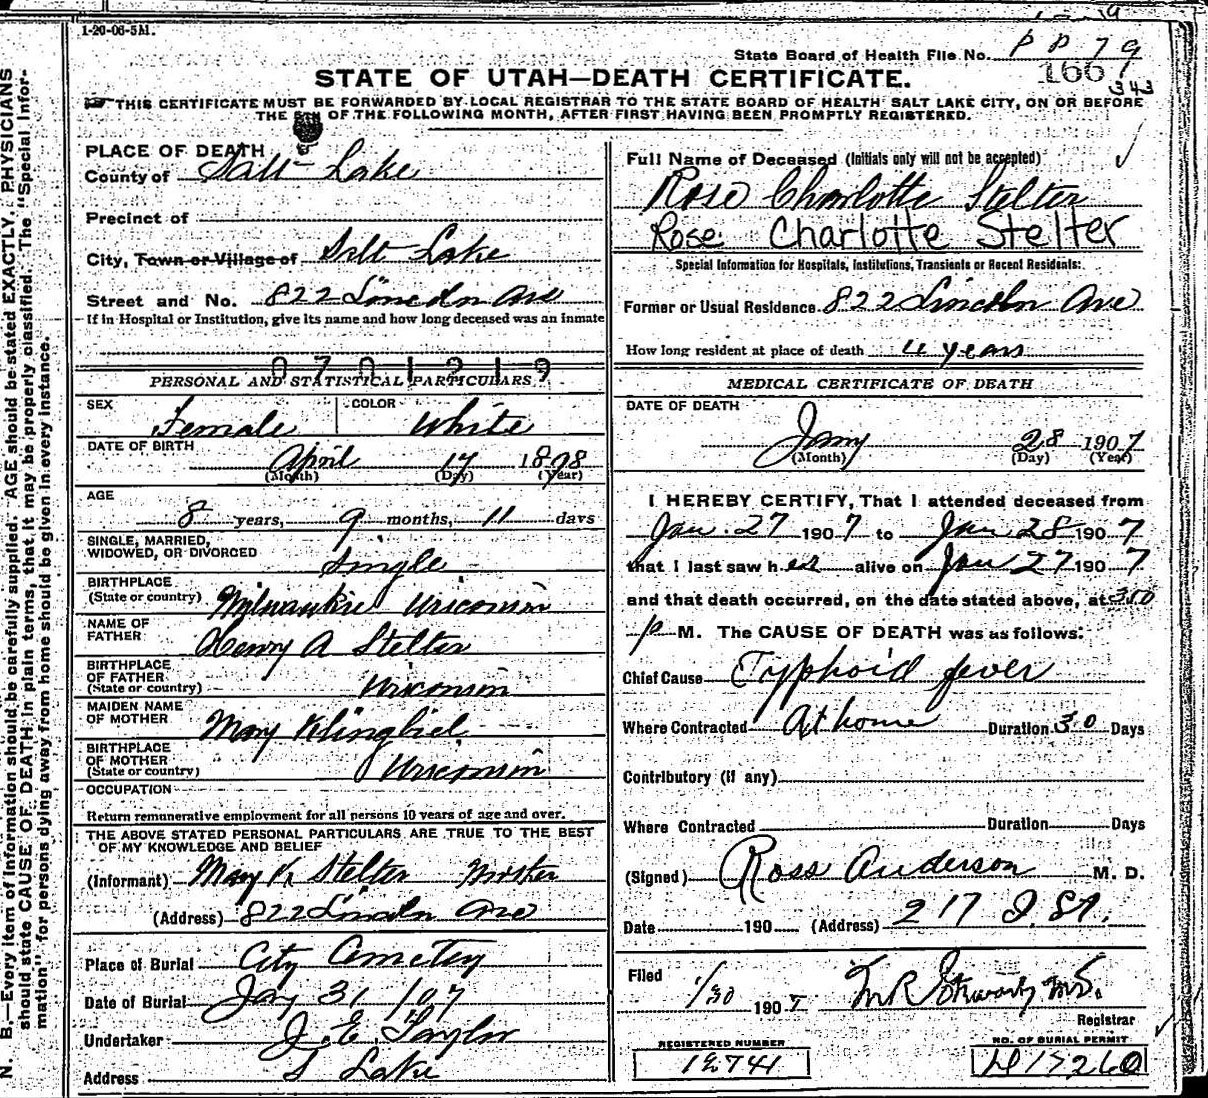 1-20-06-5M.
State Board of Health File No. P P 79
166
343
STATE OF UTAH—DEATH CERTIFICATE.
THIS CERTIFICATE MUST BE FORWARDED BY LOCAL REGISTRAR TO THE STATE BOARD OF HEALTH SALT LAKE CITY, ON OR BEFORE
THE 5TH OF THE FOLLOWING MONTH, AFTER FIRST HAVING BEEN PROMPTLY REGISTERED.
N. B.—Every item of information should be carefully supplied. AGE should be stated EXACTLY. PHYSICIANS
should state CAUSE OF DEATH in plain terms, that it may be properly classified. The "Special Infor-
mation" for persons dying away from home should be given in every instance.
PLACE OF DEATH
County of Salt Lake
Precinct of
City, Town or Village of Salt Lake
Street and No. 822 Lincoln Ave
If in Hospital or Institution, give its name and how long deceased was an inmate
0701219
PERSONAL AND STATISTICAL PARTICULARS
SEX Female COLOR White
DATE OF BIRTH April 17 1898
(Month) (Day) (Year)
AGE
8 years, 9 months, 11 days
SINGLE, MARRIED,
WIDOWED, OR DIVORCED Single
BIRTHPLACE
(State or country) Milwaukie Wisconsin
NAME OF
FATHER Henry A Stelter
BIRTHPLACE
OF FATHER
(State or country) Wisconsin
MAIDEN NAME
OF MOTHER Mary Klingbiel
BIRTHPLACE
OF MOTHER
(State or country) Wisconsin
OCCUPATION
Return remunerative employment for all persons 10 years of age and over.
THE ABOVE STATED PERSONAL PARTICULARS ARE TRUE TO THE BEST
OF MY KNOWLEDGE AND BELIEF
(Informant) Mary K Stelter Mother
(Address) 822 Lincoln Ave
Place of Burial City Cemetery
Date of Burial Jany 31 / 07
Undertaker J. E. Taylor
Address S Lake
Full Name of Deceased (Initials only will not be accepted)
Rose Charlotte Stelter
Rose Charlotte Stelter
Special Information for Hospitals, Institutions, Transients or Recent Residents:
Former or Usual Residence 822 Lincoln Ave
How long resident at place of death 4 years
MEDICAL CERTIFICATE OF DEATH
DATE OF DEATH
Jany 28 1907
(Month) (Day) (Year)
I HEREBY CERTIFY, That I attended deceased from
Jan. 27 1907 to Jan 28 1907
that I last saw her alive on Jan 27 1907
and that death occurred, on the date stated above, at 3:50
p M. The CAUSE OF DEATH was as follows:
Chief Cause Typhoid fever
Where Contracted At home Duration 30 Days
Contributory (if any)
Where Contracted Duration Days
(Signed) Ross Anderson M. D.
Date 190 (Address) 217 J St.
Filed 1/30 1907
Registrar
REGISTERED NUMBER
NO. OF BURIAL PERMIT